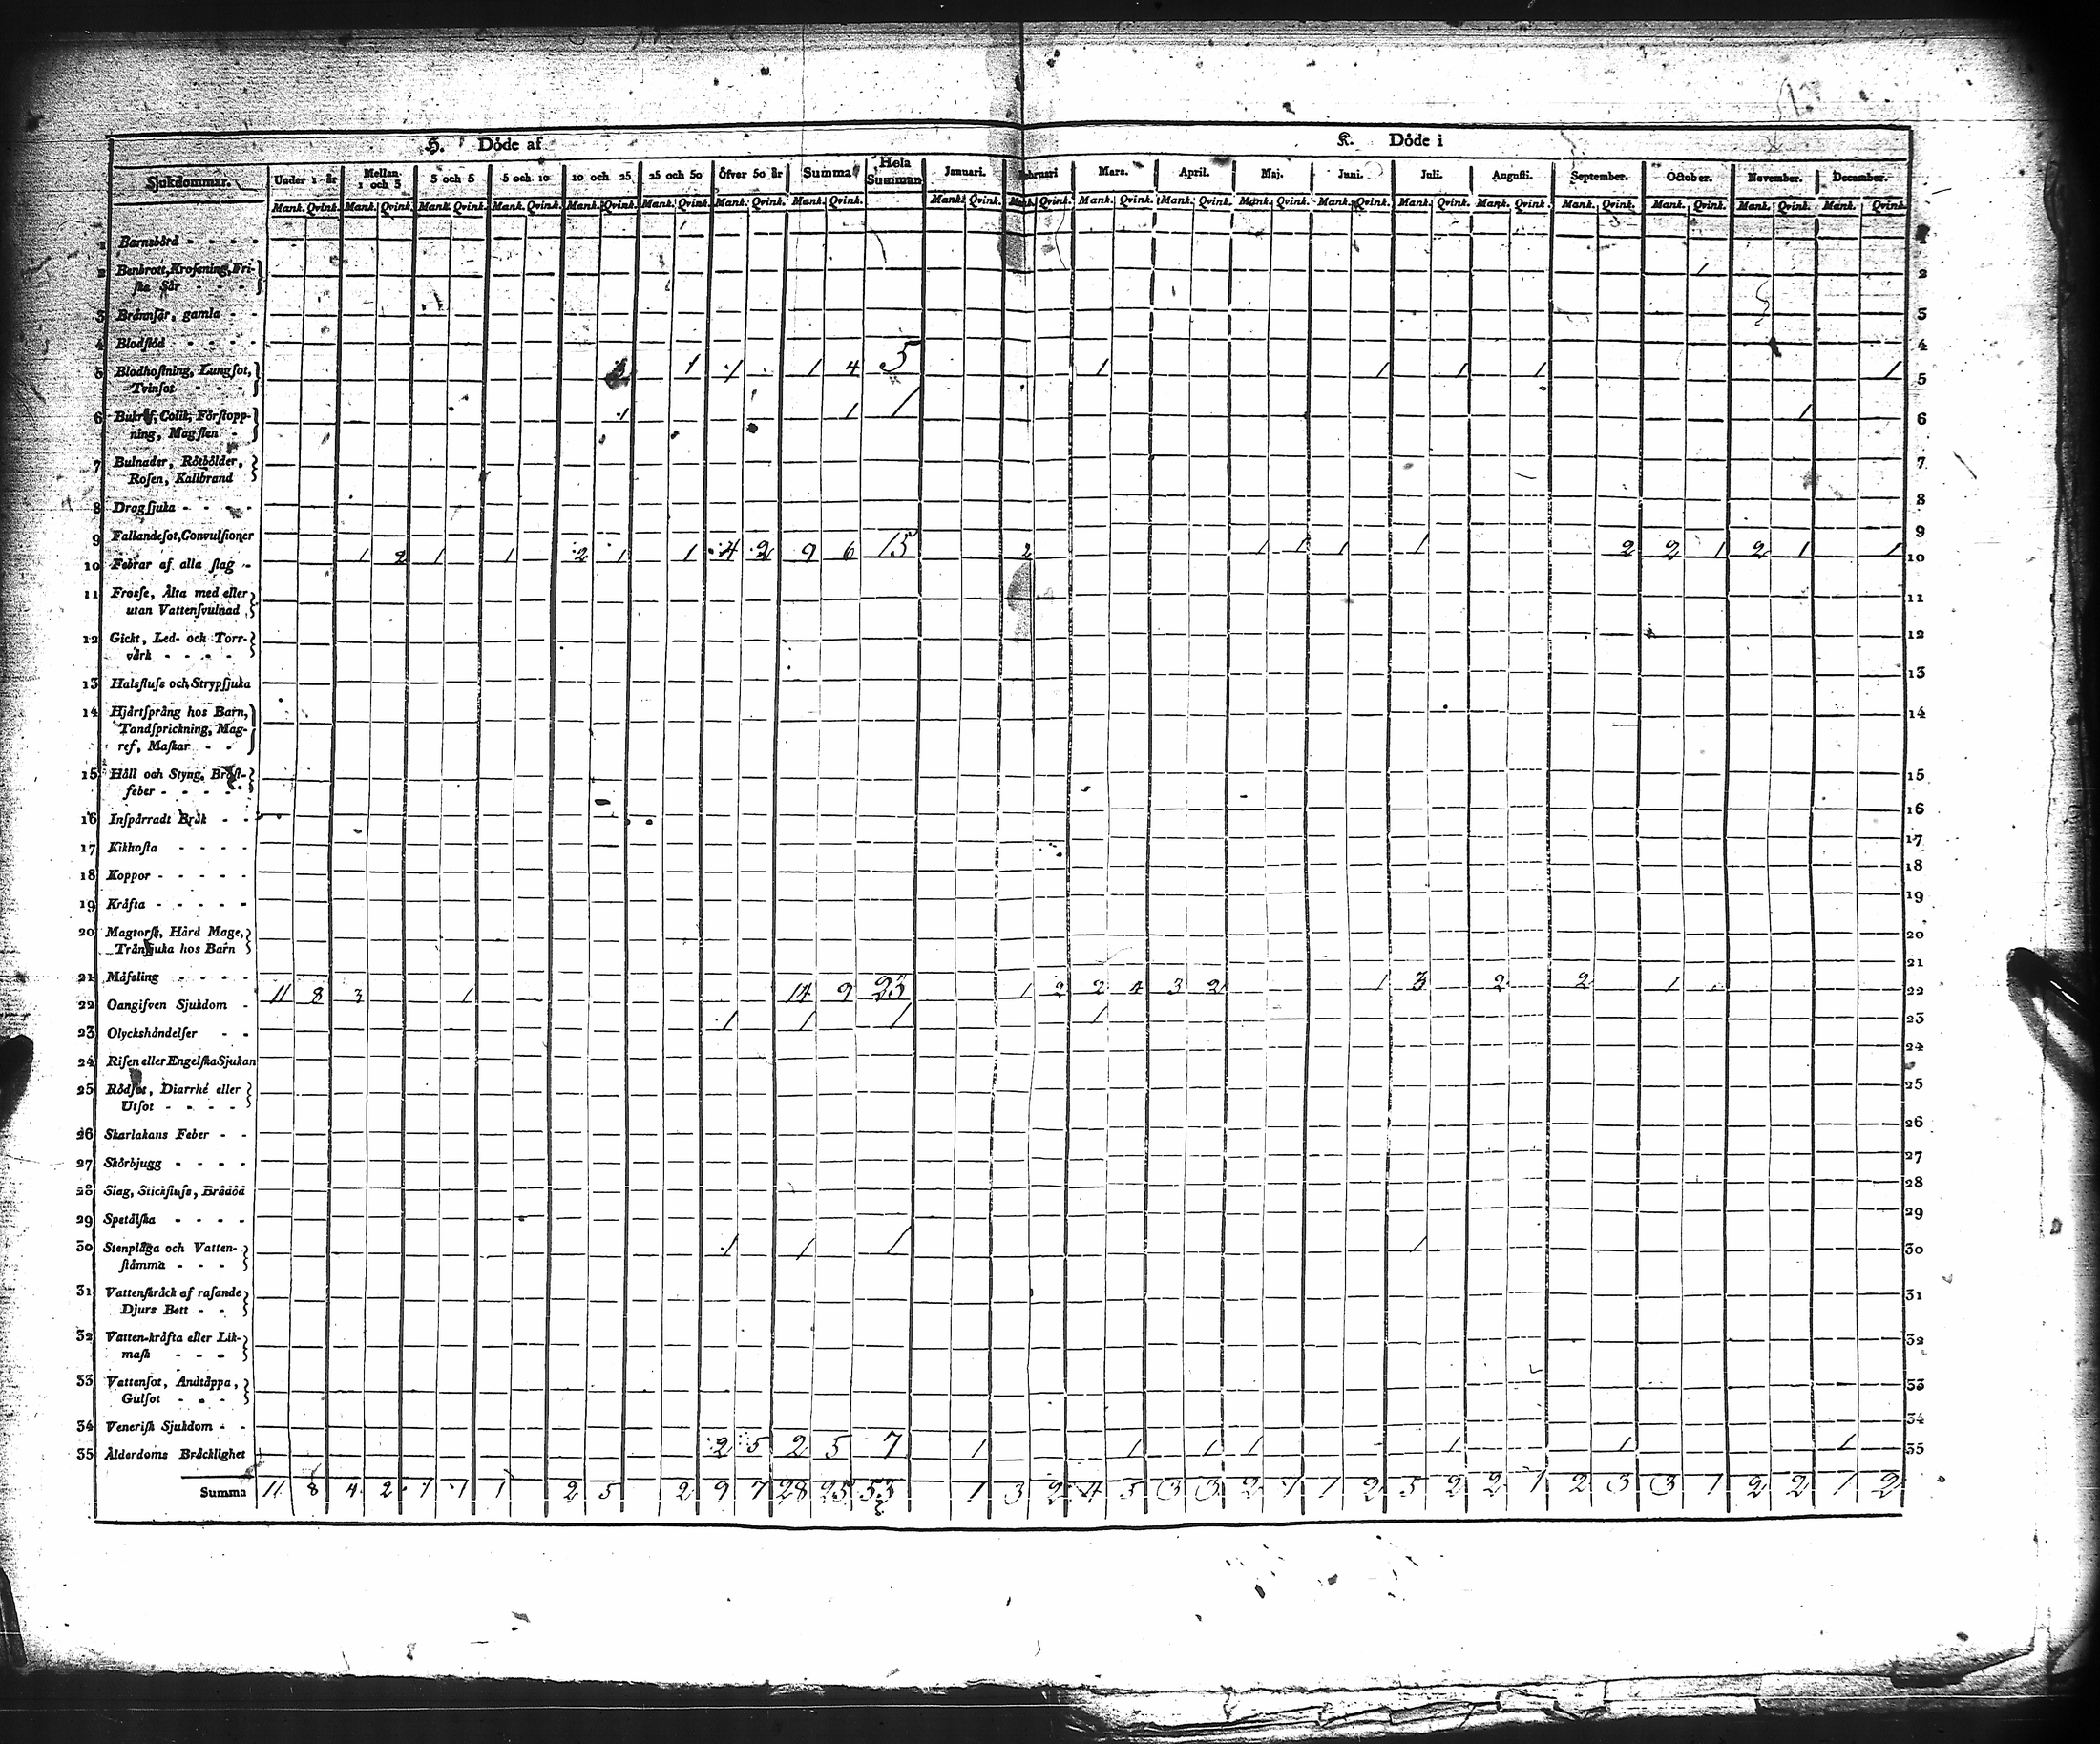 H. Döde af K. Döde i
Sjukdommar. Under 1 år Mellan 1 och 3 3 och 5 5 och 10 10 och 25 25 och 50 Öfver 50 år Summa Hela Summan Januari. Februari Mars. April. Maj. Juni. Juli. Augusti. September. October. November. December.
Mank. Qvink. Mank. Qvink. Mank. Qvink. Mank. Qvink. Mank. Qvink. Mank. Qvink. Mank. Qvink. Mank. Qvink. Mank. Qvink. Mank. Qvink. Mank. Qvink. Mank. Qvink. Mank. Qvink. Mank. Qvink. Mank. Qvink. Mank. Qvink. Mank. Qvink. Mank. Qvink. Mank. Qvink. Mank. Qvink.
1 Barnsbörd - - - - 1
2 Benbrott, Krosſning, Fri- 2
ſka Sår - - - -
3 Brännſår, gamla - - 3
4 Blodſtöd - - - - 4
5 Blodhoſtning, Lungſot, 3 1 1 1 4 5 1 1 1 1 1 5
Tvinſot - - - -
6 Bukref, Colik, Förſtopp- 1 1 1 1 6
ning, Magſten -
7 Bulnader, Rötbölder, 7
Roſen, Kallbrand
8 Dragſjuka - - - - 8
9 Fallandeſot, Convulſioner 9
10 Febrar af alla ſlag - 1 2 1 1 2 1 1 4 2 9 6 15 2 1 1 1 1 2 2 1 2 1 1 10
11 Frosſe, Älta med eller 11
utan Vattenſvulnad
12 Gickt, Led- och Torr- 12
värk - - - -
13 Halsfluſs och Strypſjuka 13
14 Hjärtſprång hos Barn, 14
Tandſprickning, Mag-
ref, Maſkar - -
15 Håll och Styng, Bröſt- 15
feber - - - -
16 Inſpärradt Bråk - - 16
17 Kikhoſta - - - - 17
18 Koppor - - - - - 18
19 Kräfta - - - - - 19
20 Magtorſk, Hård Mage, 20
Tränſjuka hos Barn
21 Mäſsling - - - - 21
22 Oangifven Sjukdom - 11 8 3 1 14 9 23 1 2 2 4 3 2 1 3 2 2 1 22
23 Olyckshändelſer - - 1 1 1 1 23
24 Riſen eller Engelſka Sjukan 24
25 Rödſot, Diarrhé eller 25
Utſot - - - -
26 Skarlakans Feber - - 26
27 Skörbjugg - - - - 27
28 Slag, Stickfluſs, Brådöd 28
29 Spetälſka - - - - 29
30 Stenplåga och Vatten- 1 1 1 1 30
ſtämma - - - -
31 Vattenſkräck af raſande 31
Djurs Bett - -
32 Vatten-kräfta eller Lik- 32
maſk - - -
33 Vattenſot, Andtäppa, 33
Gulſot - - -
34 Veneriſk Sjukdom - - 34
35 Ålderdoms Bräcklighet 2 5 2 5 7 1 1 1 1 1 1 1 35
Summa 11 8 4 2 1 1 1 2 5 2 9 7 28 25 53 1 3 2 4 5 3 3 2 1 1 2 5 2 2 1 2 3 3 1 2 2 1 2